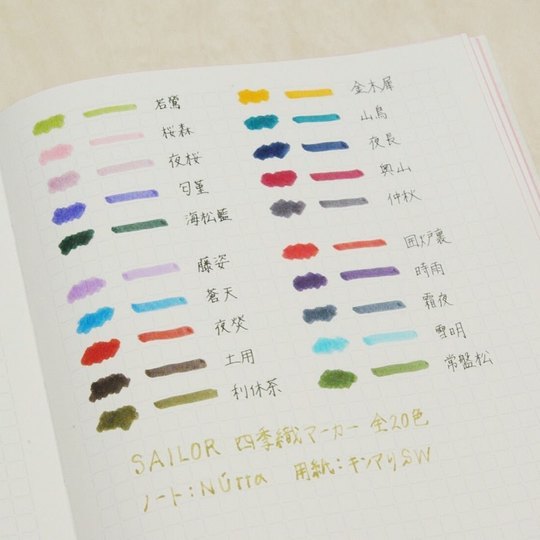 若鶯
桜森
夜桜
匂菫
海松藍
藤姿
蒼天
夜焚
土用
利休茶
金木犀
山鳥
夜長
奥山
仲秋
囲炉裏
時雨
霜夜
雪明
常盤松
SAILOR 四季織マーカー 全20色
ノート:Núrra 用紙:キンマリSW